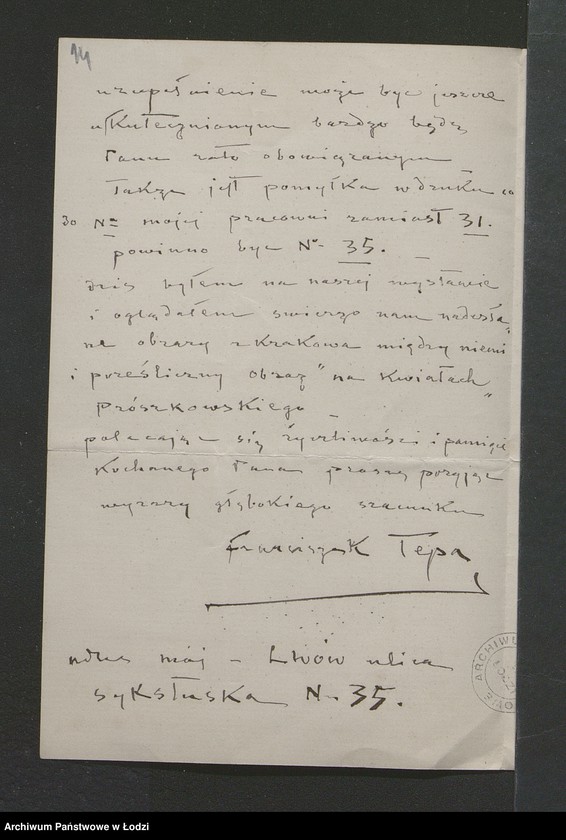 14
uzupełnienie może być jeszcze
uskutecznionym bardzo będę
Panu zato obowiązanym
Także jest pomyłka w druku co
do No mojej pracowni zamiast 31.
powinno być No 35. —
dziś byłem na naszej wystawie
i oglądałem świeżo nam nadesła„
ne obrazy z Krakowa między niemi
i prześliczny obraz "na Kwiatach"
Prószkowskiego —
polecając się życzliwości i pamięci
Kochanego Pana proszę przyjąć
wyrazy głębokiego szacunku
Franciszek Tepa
adres mój – Lwów ulica
Sykstuska N– 35.
ARCHIWU
Archiwum Państwowe w Łodzi